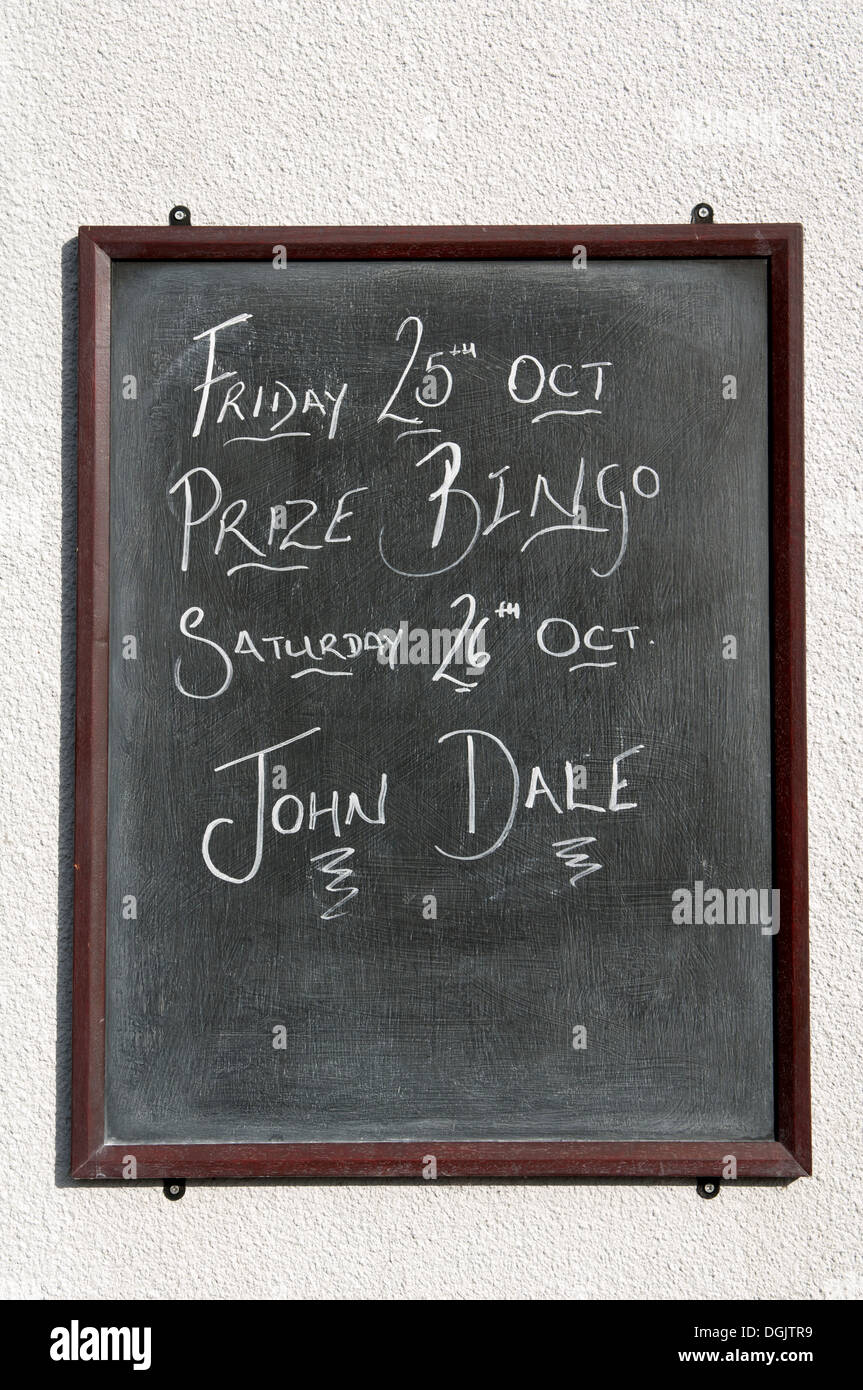 FRIDAY 25TH OCT
PRIZE BINGO
SATURDAY 26TH OCT.
JOHN DALE
alamy
alamy
Image ID: DGJTR9
www.alamy.com